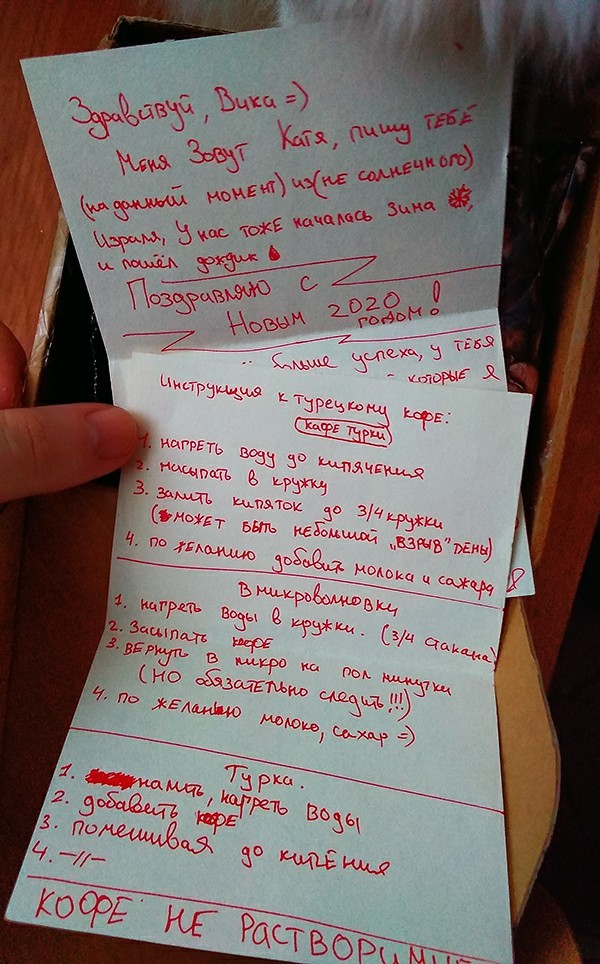 Здравствуй, Вика =)
Меня Зовут Катя, пишу ТЕБЕ
(на данный момент) из (не солнечного)
Израля, У нас тоже началась зима ,
и пошёл дождик
Поздравляю с
Новым 2020
годом!
больше успеха, у тебя
которые я
Инструкция к турецкому кофе:
кафе турки
1. нагреть воду до кипячения
2. насыпать в кружку
3. залить кипяток до 3/4 кружки
(может быть небольшой „взрыв" пены)
4. по желанию добавить молока и сахара
В микроволновки
1. нагреть воды в кружки. (3/4 стакана)
2. Засыпать кофе
3. вернуть в микро на пол минутки
(но обязательно следить!!!)
4. по желанию молоко, сахар =)
Турка.
1. налить, нагреть воды
2. добавить кофе
3. помешивая до кипения
4. –//–
КОФЕ НЕ